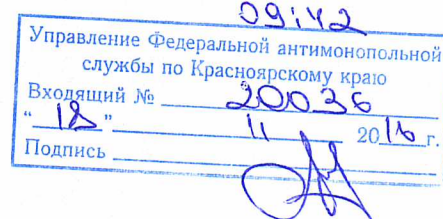 09:42
Управление Федеральной антимонопольной
службы по Красноярскому краю
Входящий № 20036
"18" 11 2016 г.
Подпись